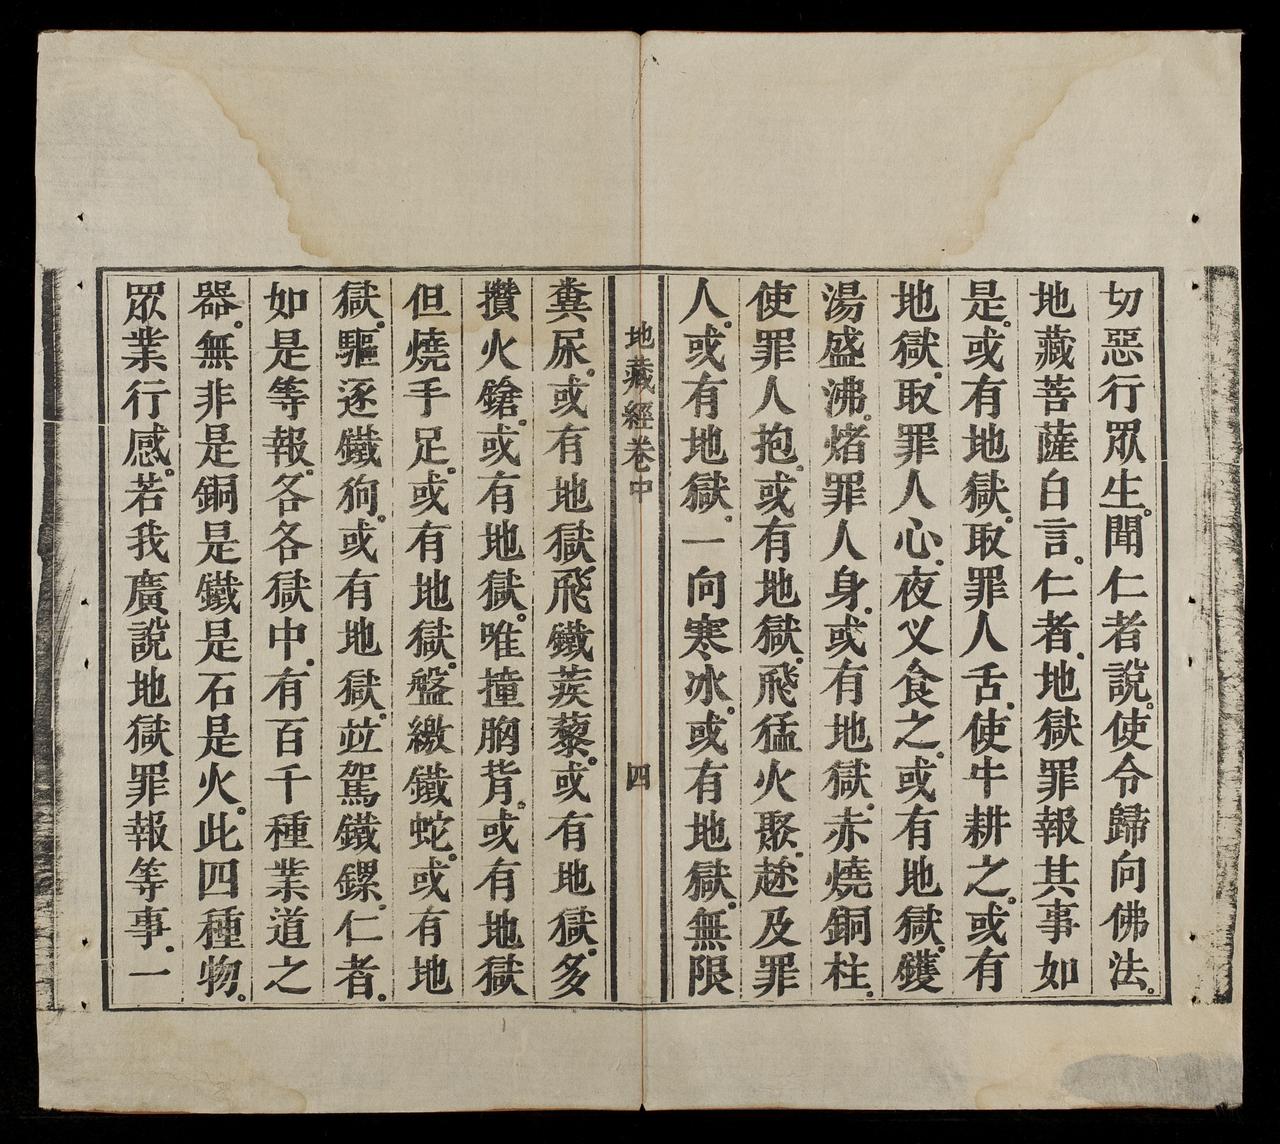 切惡行眾生。聞仁者說。使令歸向佛法。
地藏菩薩白言。仁者。地獄罪報其事如
是。或有地獄。取罪人舌。使牛耕之。或有
地獄。取罪人心。夜叉食之。或有地獄。鑊
湯盛沸。煮罪人身。或有地獄。赤燒銅柱。
使罪人抱。或有地獄。飛猛火聚。趂及罪
人。或有地獄。一向寒冰。或有地獄。無限
地藏經卷中
四
糞尿。或有地獄。飛鐵蒺藜。或有地獄。多
攢火鎗。或有地獄。唯撞胸背。或有地獄
但燒手足。或有地獄。盤繳鐵蛇。或有地
獄。驅逐鐵狗。或有地獄。竝駕鐵騾。仁者。
如是等報。各各獄中。有百千種業道之
器。無非是銅是鐵是石是火。此四種物。
眾業行感。若我廣說地獄罪報等事。一